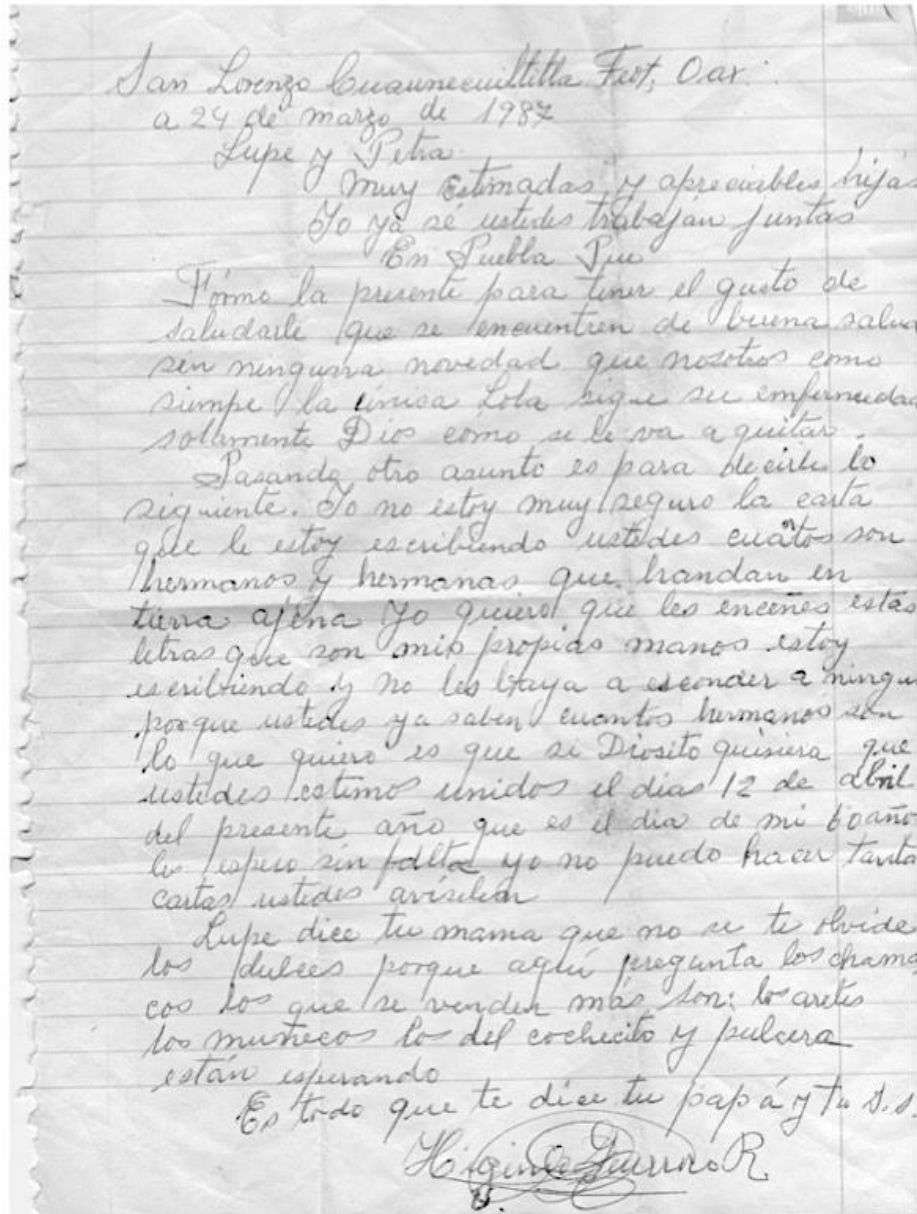 San Lorenzo Cuaunecuiltitla Teot, Oax.
a 24 de marzo de 1987
Lupe y Petra
Muy Estimadas y apreciables hijas
Yo ya se ustedes trabajan juntas
En Puebla Pue
Tómo la presente para tener el gusto de
saludarle que se encuentren de buena salud
sin ninguna novedad que nosotros como
siempe la única Lola sigue su enfermedad
solamente Dios como se le va a quitar.
Pasando otro asunto es para decirle lo
siguiente. Yo no estoy muy seguro la carta
que le estoy escribiendo ustedes cuátos son
hermanos y hermanas que handan en
tierra ajena Yo quiero que les enceñes estas
letras que son mis propias manos estoy
escribiendo y no les baya a esconder a ningu
porque ustedes ya saben cuantos hermanos son
lo que quiero es que si Diosito quisiera que
ustedes estemos unidos el dias 12 de abril
del presente año que es el dia de mi 60 año
les espero sin falta yo no puedo hacer tanta
cartas ustedes avisenlen
Lupe dice tu mama que no se te olvide
los dulces porque aquí pregunta los chama
cos los que se venden más son: los aretes
los muñecos los del cochecito y pulcera
están esperando
Es todo que te dice tu papá y tu S.S
Higinio Guerrero R.